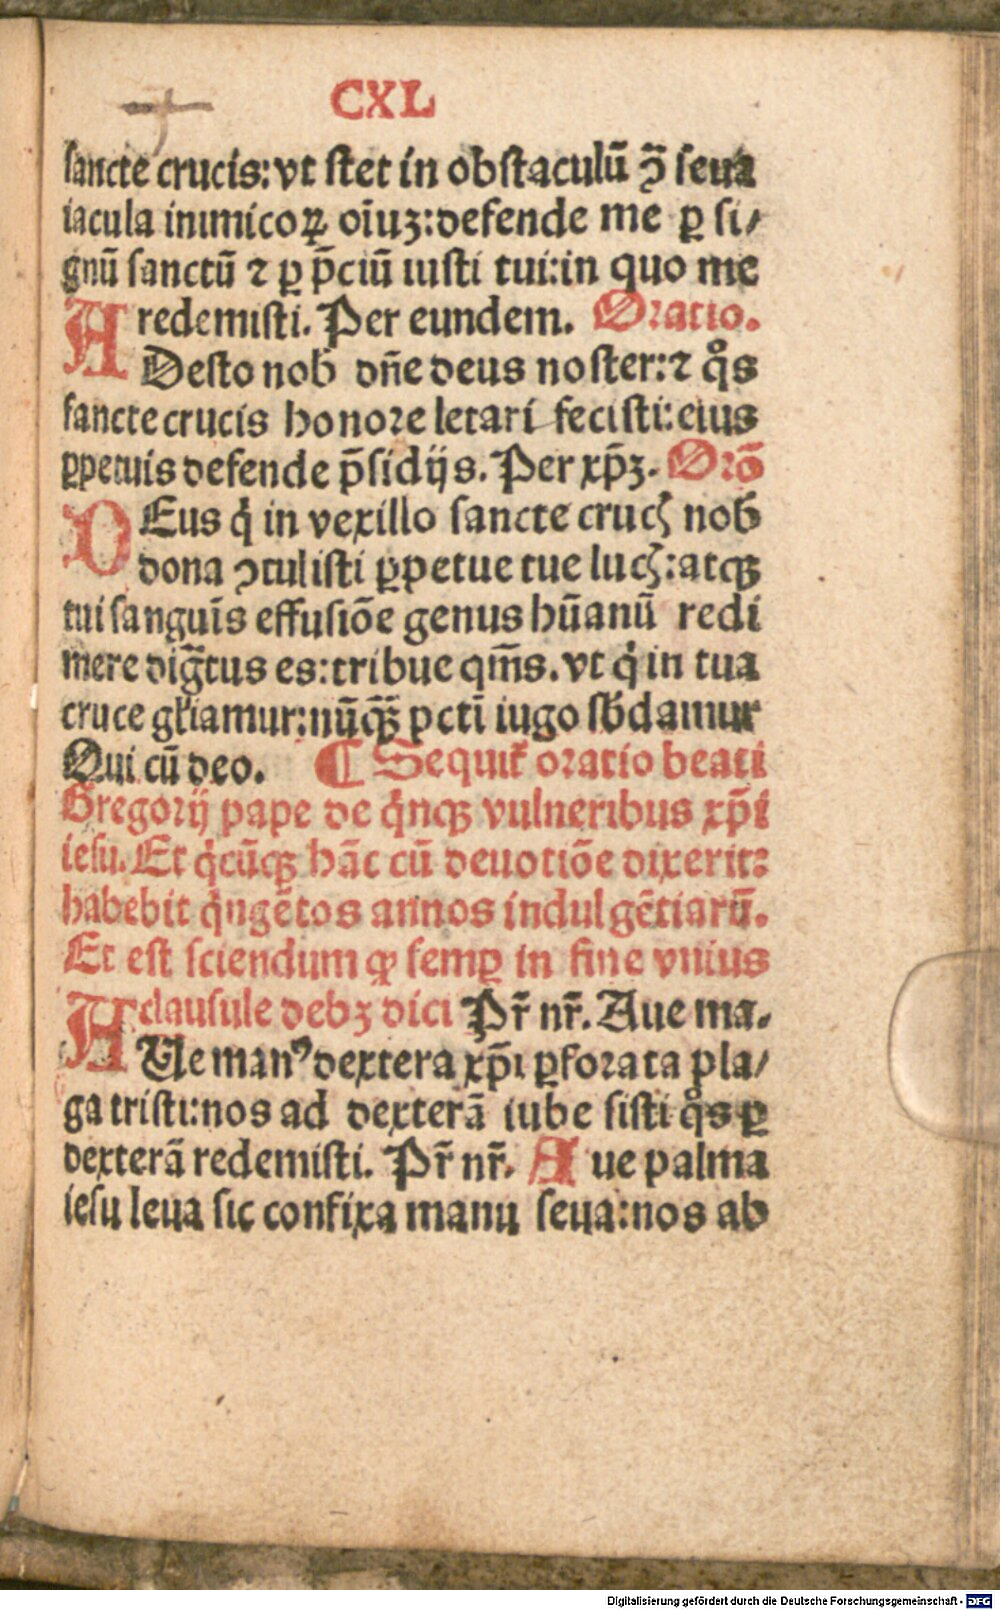 CXL
sancte crucis: vt stet in obstaculū ꝯ̄ seua
iacula inimicoꝝ oīuꝫ: defende me ꝑ si/
gnū sanctū ⁊ ꝑ p̄ciū iusti tui: in quo me
redemisti. Per eundem. Oratio.
ADesto nob̄ dn̄e deus noster: ⁊ qͦs
sancte crucis honore letari fecisti: eius
ꝑpetuis defende p̄sidijs. Per xp̄ꝫ. Orō
DEus q̇ in vexillo sancte crucꝭ nob̄
dona ꝯtulisti ꝑpetue tue lucꝭ: atqꝫ
tui sanguīs effusiōe genus hūanū redi
mere dig̃tus es: tribue qm̄s. vt q̇ in tua
cruce gl̄iamur: nūqꝫ̄ pctī iugo sb̄damur
Qui cū deo. ¶ Sequit̄ oratio beati
Gregorij pape de q̇nqꝫ vulneribus xp̄i
iesu. Et q̇cūqꝫ hāc cū deuotiōe dixerit:
habebit q̇ngētos annos indulgētiarū.
Et est sciendum ꝙ semꝑ in fine vnius
clausule debꝫ dici Pr̄ nr̄. Aue ma.
AUe manꝰ dextera xp̄i ꝑforata pla/
ga tristi: nos ad dexterā iube sisti qͦs ꝑ
dexterā redemisti. Pr̄ nr̄. Aue palma
iesu leua sic confixa manu seua: nos ab
Digitalisierung gefördert durch die Deutsche Forschungsgemeinschaft - DFG